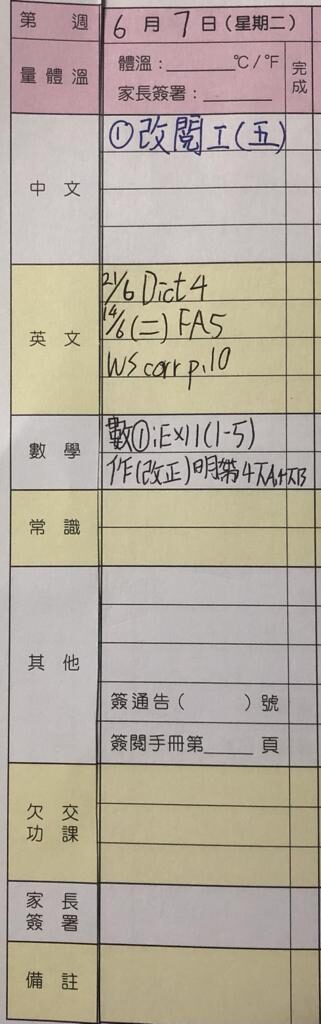 第 週 6月7日(星期二)
量體溫 體溫:______°C/°F 完成
家長簽署:______
中文 ①改閱工(五)
英文 21/6 Dict 4
14/6(二) FA5
WS corr p.10
數學 數①:Ex11(1-5)
作(改正)明第4
常識
其他
簽通告( )號
簽閱手冊第____頁
欠交功課
家長簽署
備註